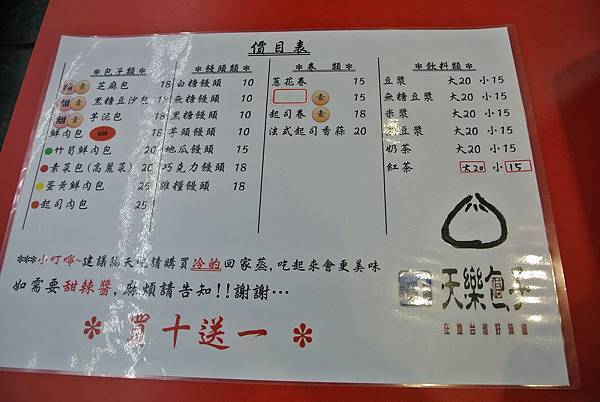 價目表
＊包子類＊
甜 素 芝麻包 18
甜 素 黑糖豆沙包
甜 素 芋泥包 18
鮮肉包
竹筍鮮肉包 20
素菜包(高麗菜) 20
蛋黃鮮肉包 25
起司肉包 25
＊饅頭類＊
白糖饅頭 10
無糖饅頭 10
黑糖饅頭 10
芋頭饅頭 10
地瓜饅頭 15
巧克力饅頭 18
雜糧饅頭 18
＊卷類＊
蔥花卷 15
素 15
起司卷 素 18
法式起司香蒜 20
＊飲料類＊
豆漿 大20 小15
無糖豆漿 大20 小15
米漿 大20 小15
豆漿 大20 小15
奶茶 大20 小15
紅茶 大20 小15
***小叮嚀~建議隔天吃請購買冷的回家蒸,吃起來會更美味
如需要甜辣醬,麻煩請告知!!謝謝…
＊買十送一＊
天樂包子
在地台灣好味道